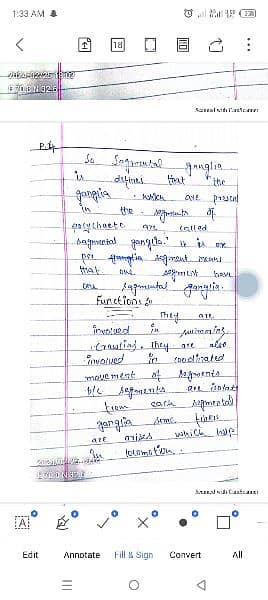 1:33 AM
18
2024-02-25 18:02
Scanned with CamScanner
P.4
So Segmental ganglia
is defines that the
ganglia which are present
in the segments of
polychaete are called
segmental ganglia. it is one
per ganglia segment means
that one segment have
one segmental ganglia.
Functions
They are
involved in swimming,
crawling. They are also
involved in coodinated
movement of segments
b/c segments are
from each segmental
ganglia some fibers
are arises which help
in locomotion.
Scanned with CamScanner
Edit
Annotate
Fill & Sign
Convert
All